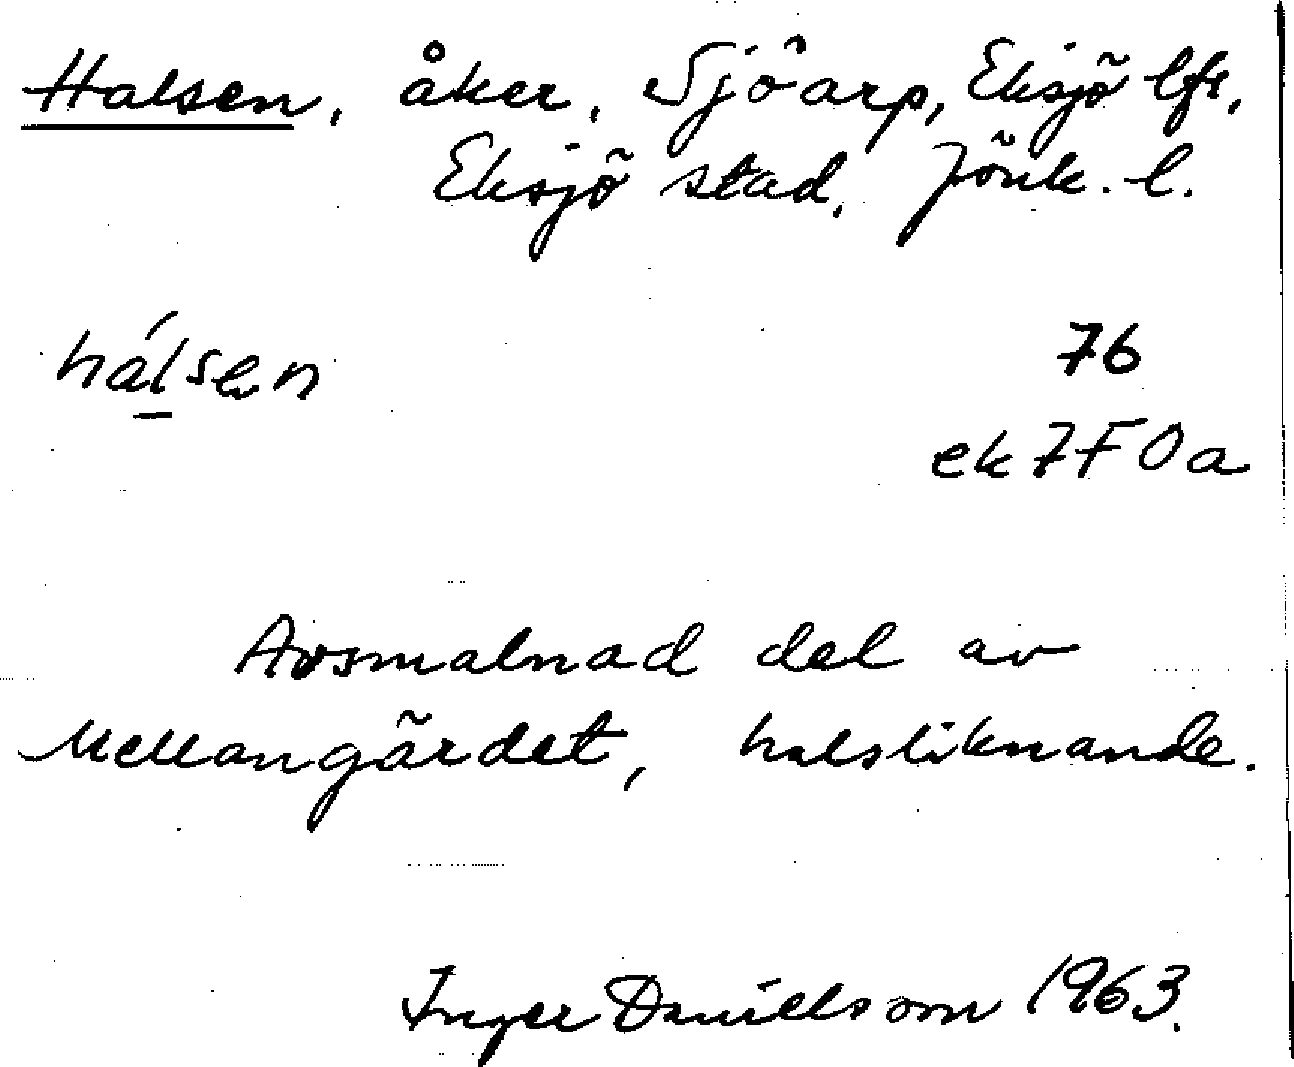 Halsen, åker, Sjöarp, Eksjö lfs,
Eksjö stad, Jönk. l.
hálsen
76
ek 7F0a
Avsmalnad del av
Mellangärdet, halsliknande.
Inger Danielsson 1963.